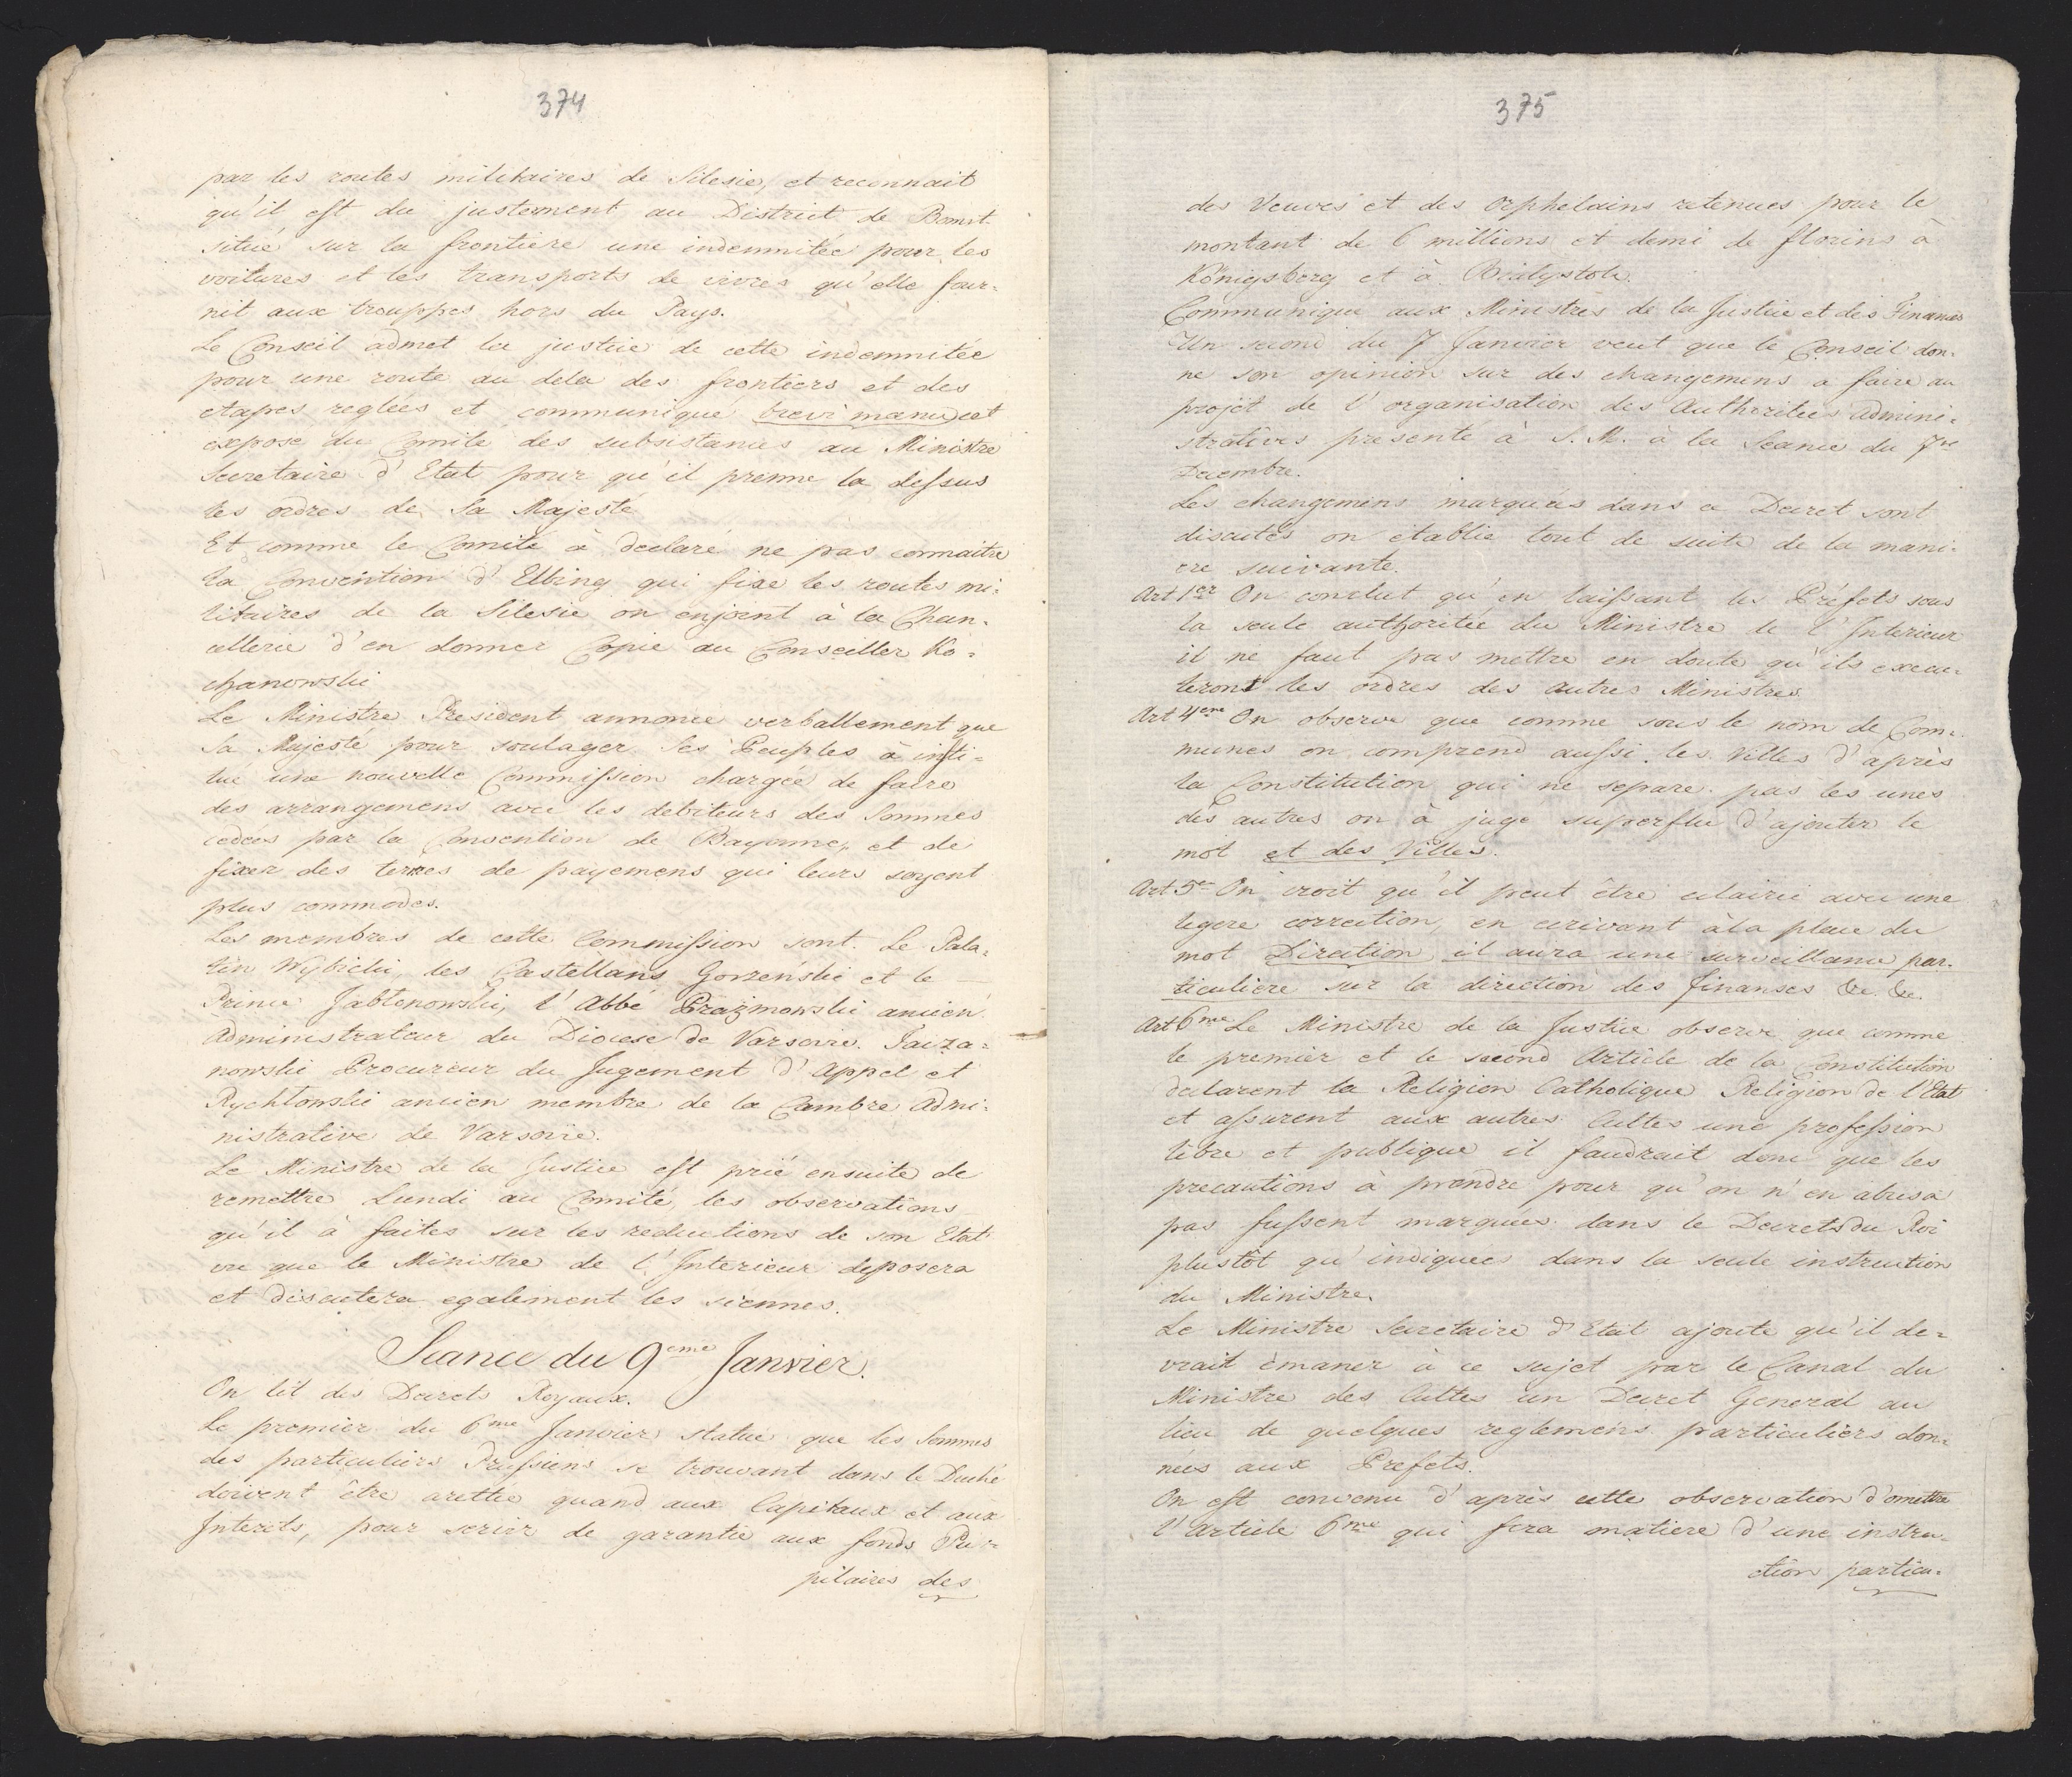 374
par les routes militaires de Silesie, et reconnait
qu'il est du justement au District de Bomst
situé sur la frontiere une indemnitée pour les
voitures et les transports de vivres qu'elle four=
nit aux trouppes hors du Pays.
Le Conseil admet la justice de cette indemnitée
pour une route au dela des frontiers et des
etapes reglées et communique brevi manu cet
expose du Comité des subsistances au Ministre
Secretaire d'Etat pour qu'il prenne la dessus
les ordres de Sa Majesté
Et comme le Comité à declaré ne pas connaitre
la Convention d'Elbing qui fixe les routes mi=
litaires de la Silesie on enjoint à la Chan=
cellerie d'en donner Copie au Conseiller Ko=
chanowski
Le Ministre President annonce verballement que
Sa Majesté pour soulager Ses Peuples à insti=
tue une nouvelle Commission chargée de faire
des arrangemens avec les debiteurs des Sommes
cedees par la Convention de Bayonne, et de
fixer des termes de payemens qui leurs soyent
plus commodes.
Les membres de cette Commission sont. Le Pala=
tin Wybicki, les Castellans Gorzeński et le
Prince Jabłonowski, l'Abbé Prażmowski ancien
Administrateur du Diocese de Varsovie.
nowski Procureur du Jugement d'Appel et
Rychłowski ancien membre de la Cambre Admi=
nistrative de Varsovie.
Le Ministre de la Justice est prié ensuite de
remettre Lundi au Comité les observations
qu'il à faites sur les reductions de son Etat
vu que le Ministre de l'Interieur deposera
et discutera egalement les siennes.
Seance du 9eme Janvier.
On lit des Decrets Royaux.
Le premier du 6me Janvier statue que les Sommes
des particuliers Prussiens se trouvant dans le Duché
doivent être arettée quand aux Capitaux et aux
Interets, pour servir de garantie aux fonds Pu=
pilaires des
375
des Veuves et des Orphelains retenues pour le
montant de 6 millions et demi de florins à
Königsberg et à Białystok.
Communiqué aux Ministres de la Justice et des Finances
Un second du 7 Janvier veut que le Conseil don=
ne son opinion sur des changemens a faire au
projet de l'organisation des Authoritées admini=
stratives presenté à S. M. à la Seance du 7re
Decembre.
Les changemens marqués dans ce Decret sont
discutés on etablie tout de suite de la mani=
ere suivante.
Art 1er On conclut qu'en laissant les Préfets sous
la seule authoritée du Ministre de l'Interieur
il ne faut pas mettre en doute qu'ils execu=
teront les ordres des autres Ministres.
Art 4eme On observe que comme sous le nom de Com=
munes on comprend aussi les Villes d'après
la Constitution qui ne separe pas les unes
des autres on à juge superflu d'ajouter le
mot et des Villes.
Art 5e On croit qu'il peut être eclairié avec une
legere correction, en ecrivant à la place du
mot Direction il aura une surveillance par=
ticuliere sur la direction des finanses &c. &c.
Art 6me Le Ministre de la Justice observe que comme
le premier et le second Article de la Constitution
declarent la Religion Catholique Religion de l'Etat
et assurent aux autres Cultes une profession
libre et publique il faudrait donc que les
precautions à prendre pour qu'on n'en abusa
pas fussent marquées dans le Decrets du Roi
plustôt qu'indiquees dans la seule instruction
du Ministre.
Le Ministre Secretaire d'Etat ajoute qu'il de=
vrait émaner à ce sujet par le Canal du
Ministre des Cultes un Decret General au
lieu de quelques reglemens particuliers don=
nées aux Prefets.
On est convenu d'après cette observation d'omettre
l'article 6me qui fera matiere d'une instru=
ction particu=